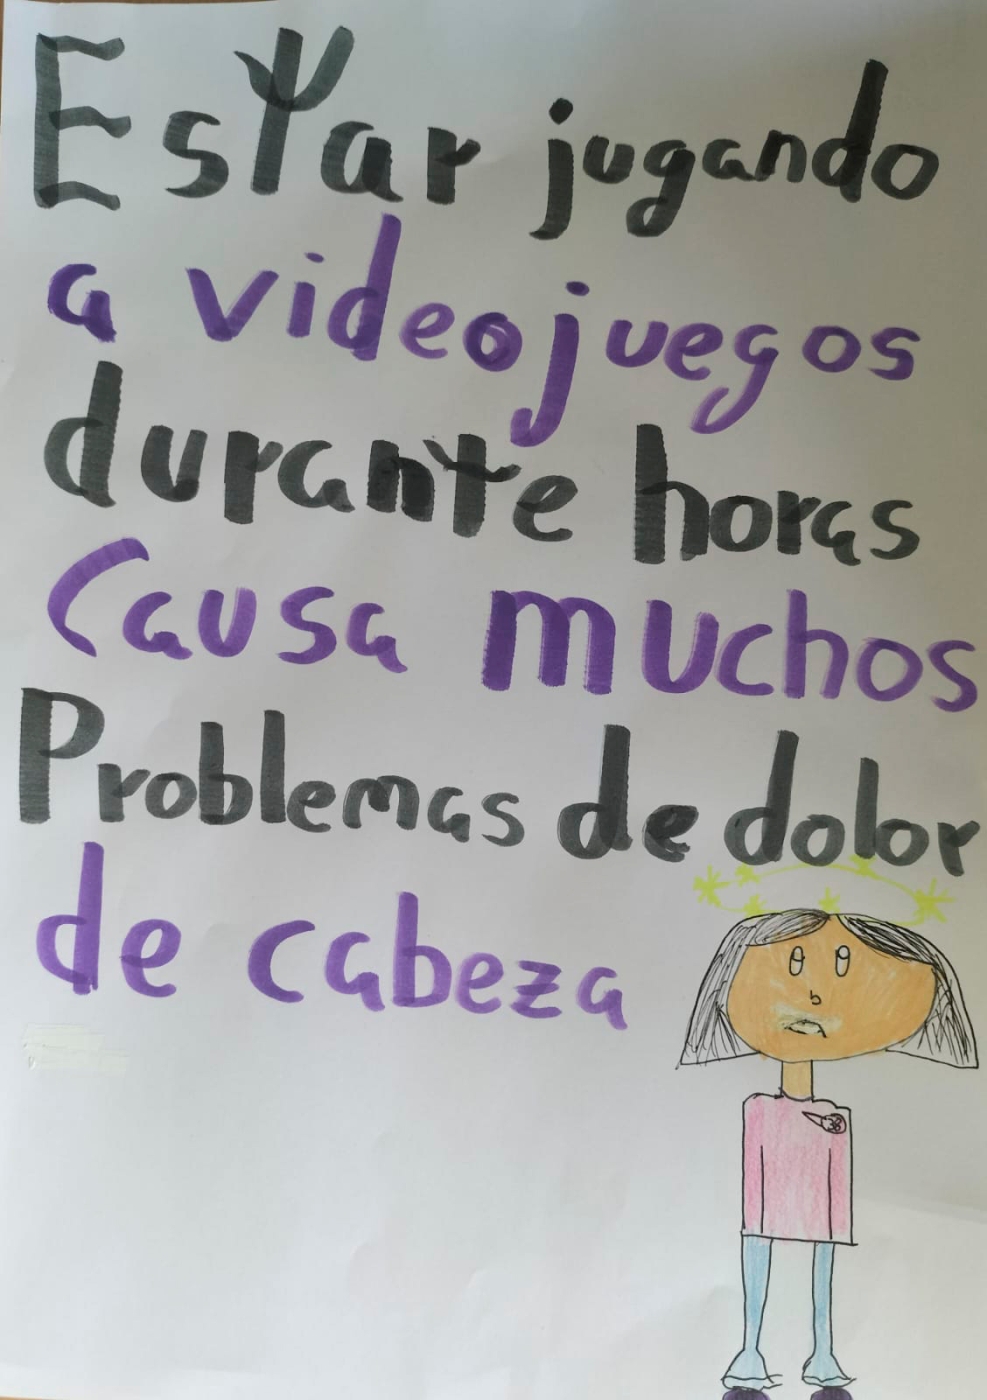 Estar jugando
a videojuegos
durante horas
Causa muchos
Problemas de dolor
de cabeza